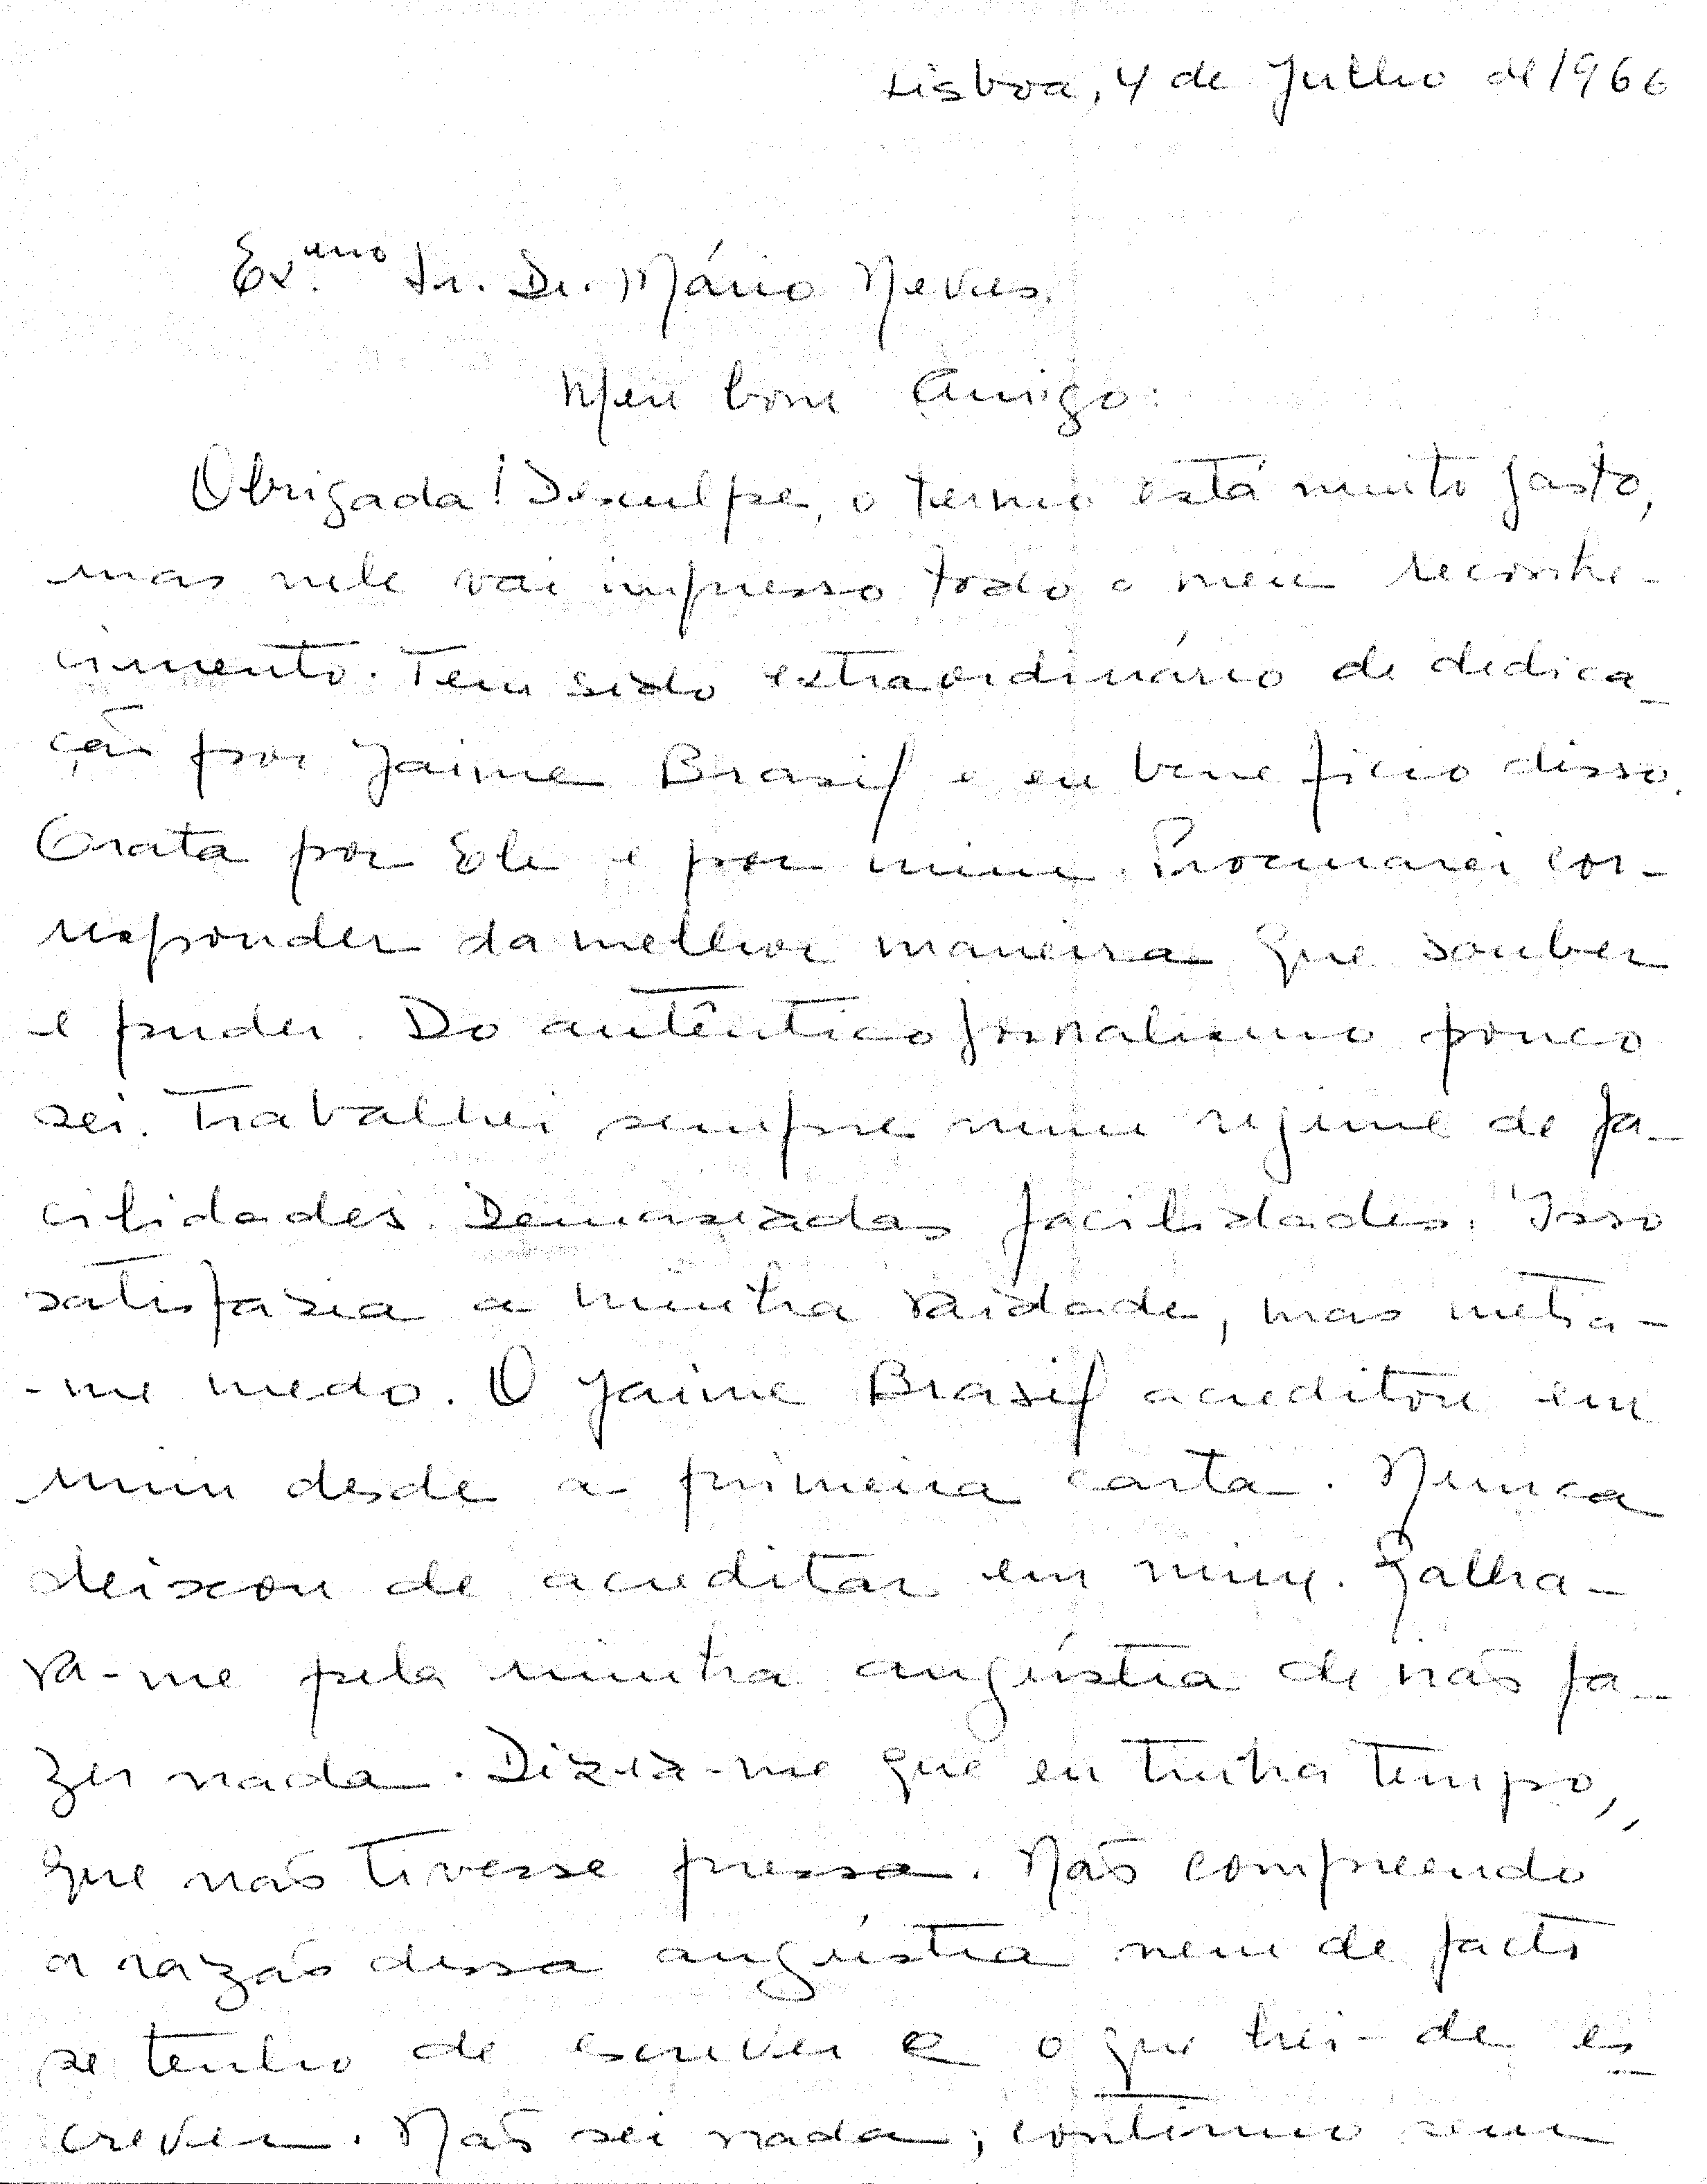 Lisboa, 4 de Julho de 1966
Ex.mo Sr. Dr. Mário Neves.
Meu bom Amigo:
Obrigada! Desculpe, o termo está muito gasto,
mas nele vai impresso todo o meu reconhe-
cimento. Tem sido extraordinário de dedica-
ção por Jaime Brasil e eu beneficio disso.
Grata por Ele e por mim. Procurarei cor-
responder da melhor maneira que souber
e puder. Do autêntico jornalismo pouco
sei. Trabalhei sempre num regime de fa-
cilidades. Demasiadas facilidades. Isso
satisfazia a minha vaidade, mas metia-
-me medo. O Jaime Brasil acreditou em
mim desde a primeira carta. Nunca
deixou de acreditar em mim. Ralha-
va-me pela minha angústia de não fa-
zer nada. Dizia-me que eu tinha tempo,
que não tivesse pressa. Não compreendo
a razão dessa angústia nem de facto
se tenho de escrever e o que hei-de es
crever. Não sei nada; continuo sem